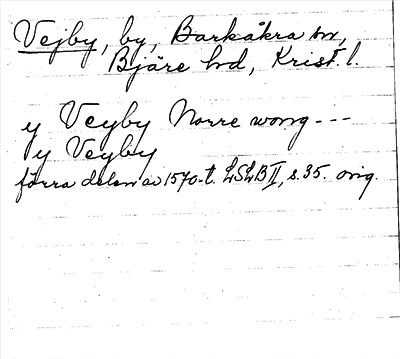 Vejby, by, Barkåkra sn,
Bjäre hd, Krist. l.
y Veyby Norre wong ---
y Veyby
förra delen av 1570-t. LSLB II, s. 35. orig.